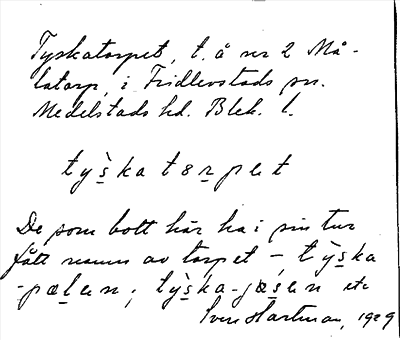 Tyskatorpet, t. å nr 2 Må-
latorp, i Fridlevstads sn.
Medelstads hd. Blek. l.
tỳs̱katoṟpet
De som bott här ha i sin tur
fått namn av torpet – tỳs̱ka
-pælen, tỳs̱ka-jœs̱en etc
Sven Hartman, 1929